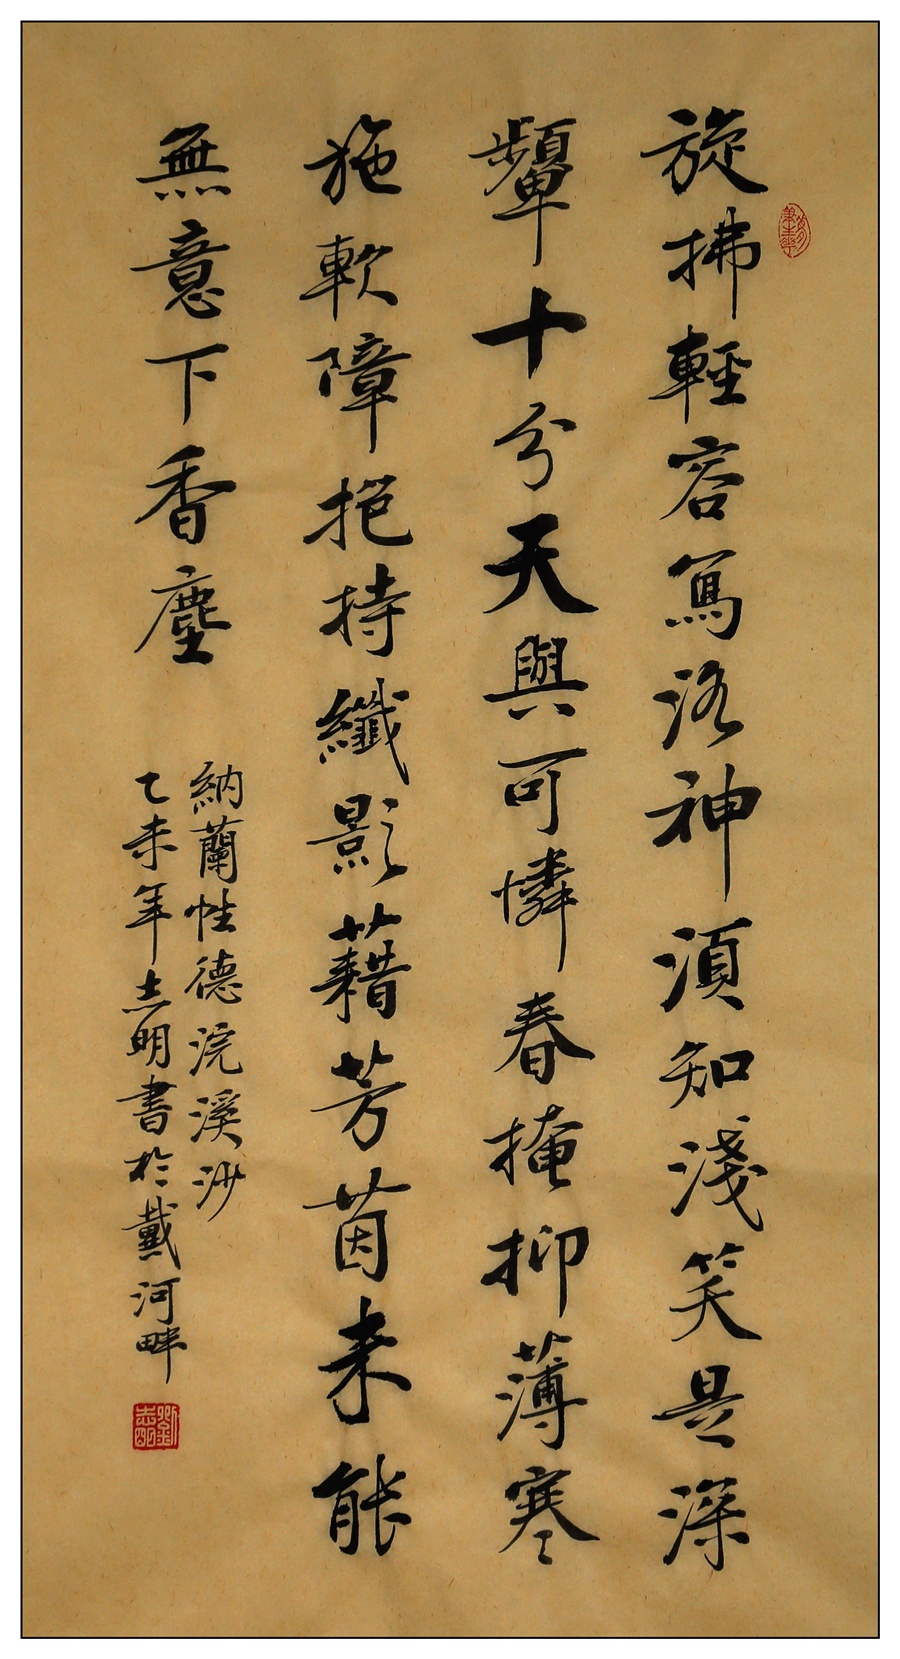 旋拂輕容寫洛神須知淺笑是深
顰十分天與可憐春掩抑薄寒
施軟障抱持纖影藉芳茵来能
無意下香塵
納蘭性德浣溪沙
乙未年志明書於戴河畔
劉志明